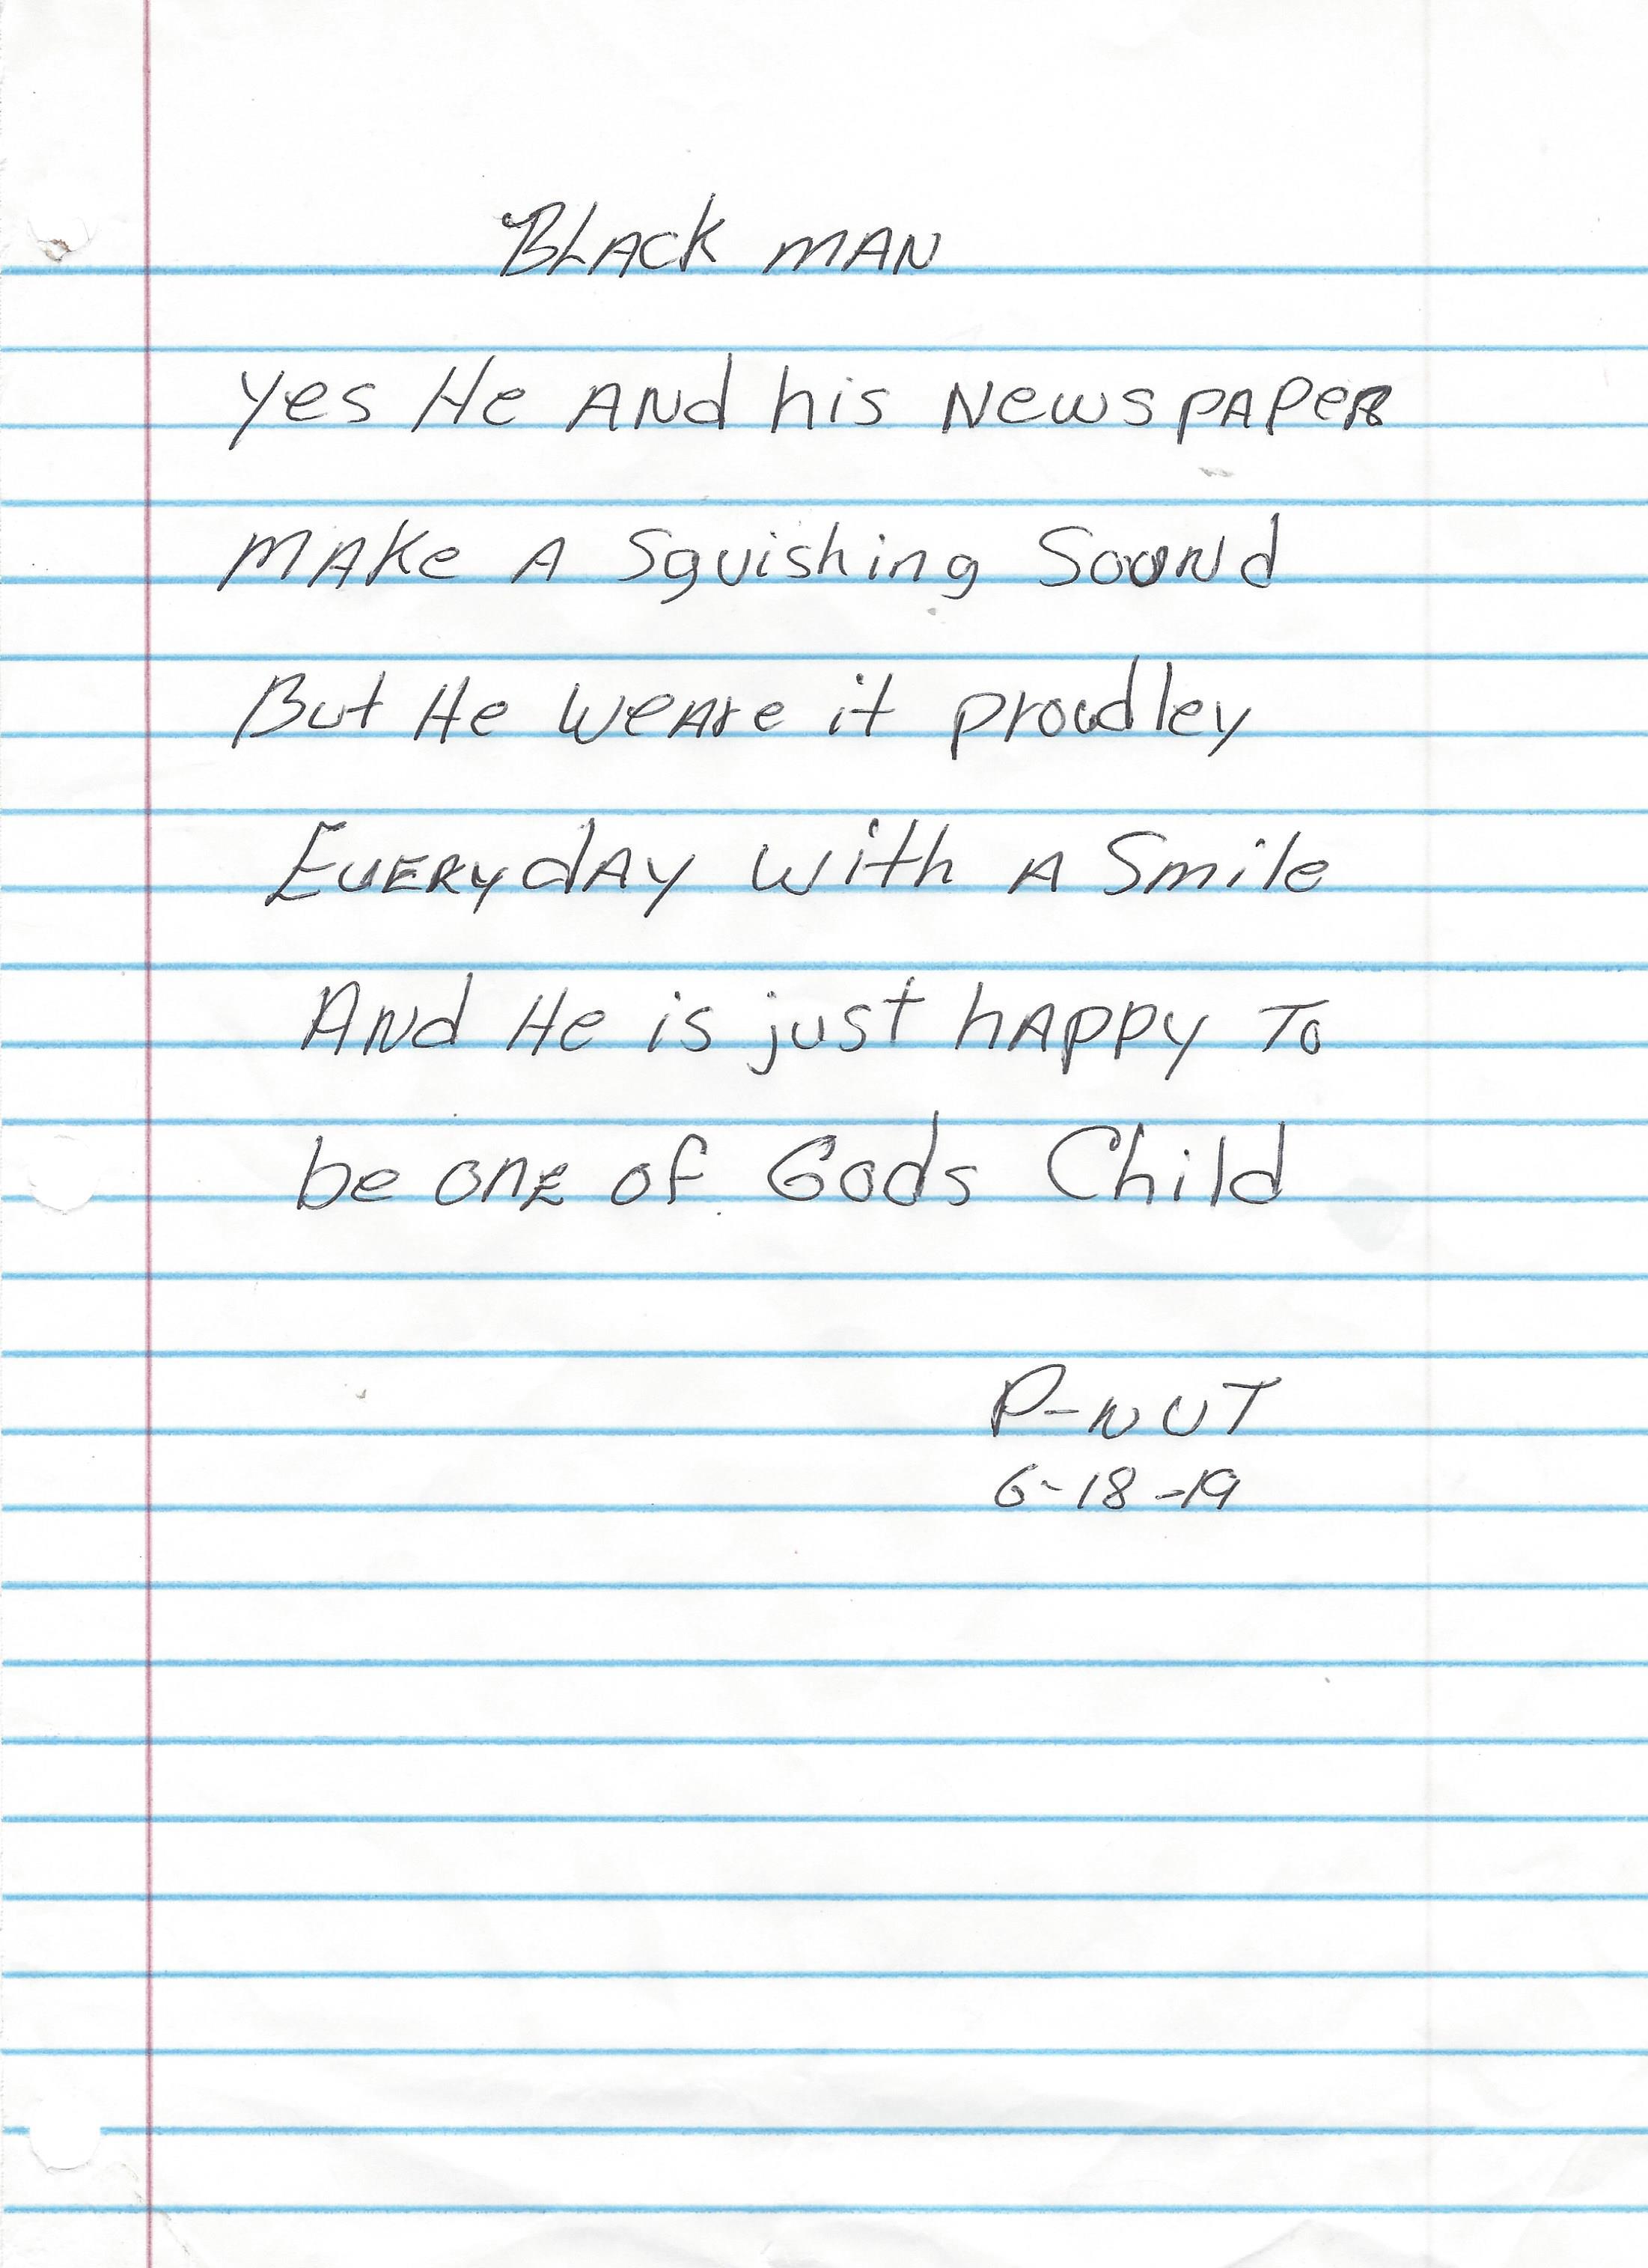 Black man
yes He And his Newspaper
make A Squishing Sound
But He weare it proudley
Everyday with A Smile
And He is just happy To
be one of Gods Child
P-NUT
6-18-19